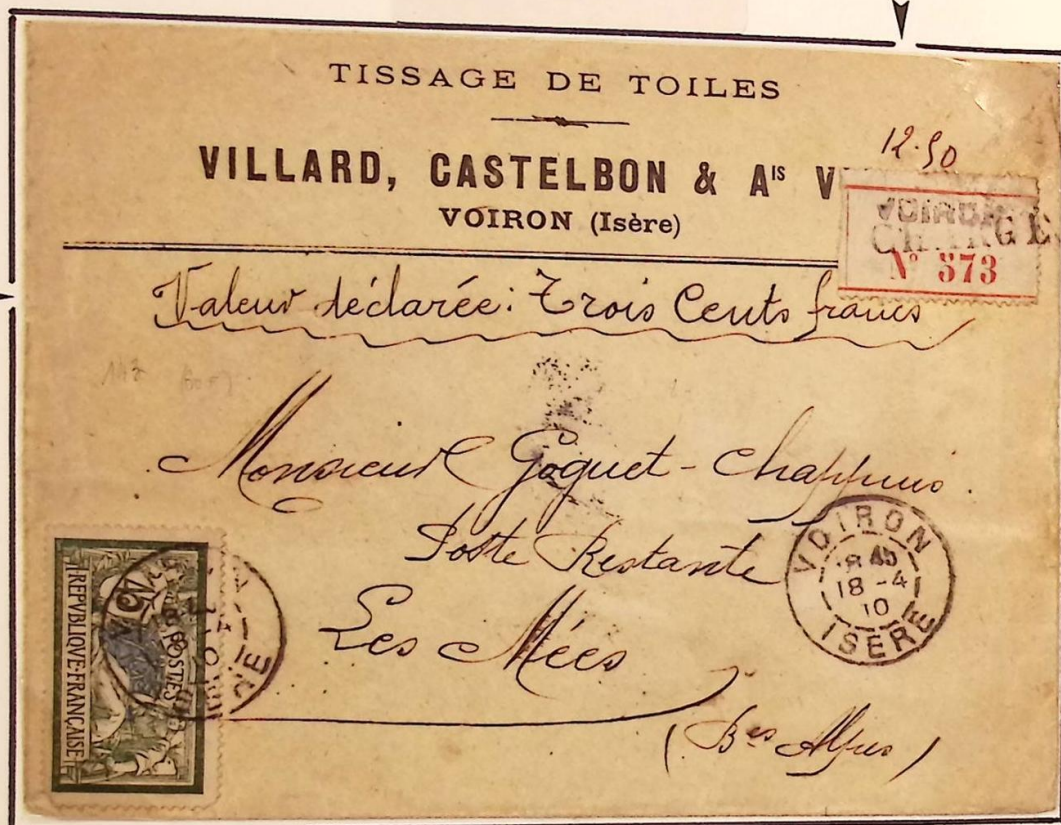 TISSAGE DE TOILES
VILLARD, CASTELBON & Aᴵˢ V
VOIRON (Isère)
12.50
VOIRON
CHARGÉ
Nº 573
Valeur déclarée: Trois Cents francs
Monsieur Goguet-Chappuis.
Poste Restante
Les Mées
(Bˢᵉˢ Alpes)
VOIRON
18-4
10
ISÈRE
45
POSTES
REPVBLIQVE·FRANÇAISE